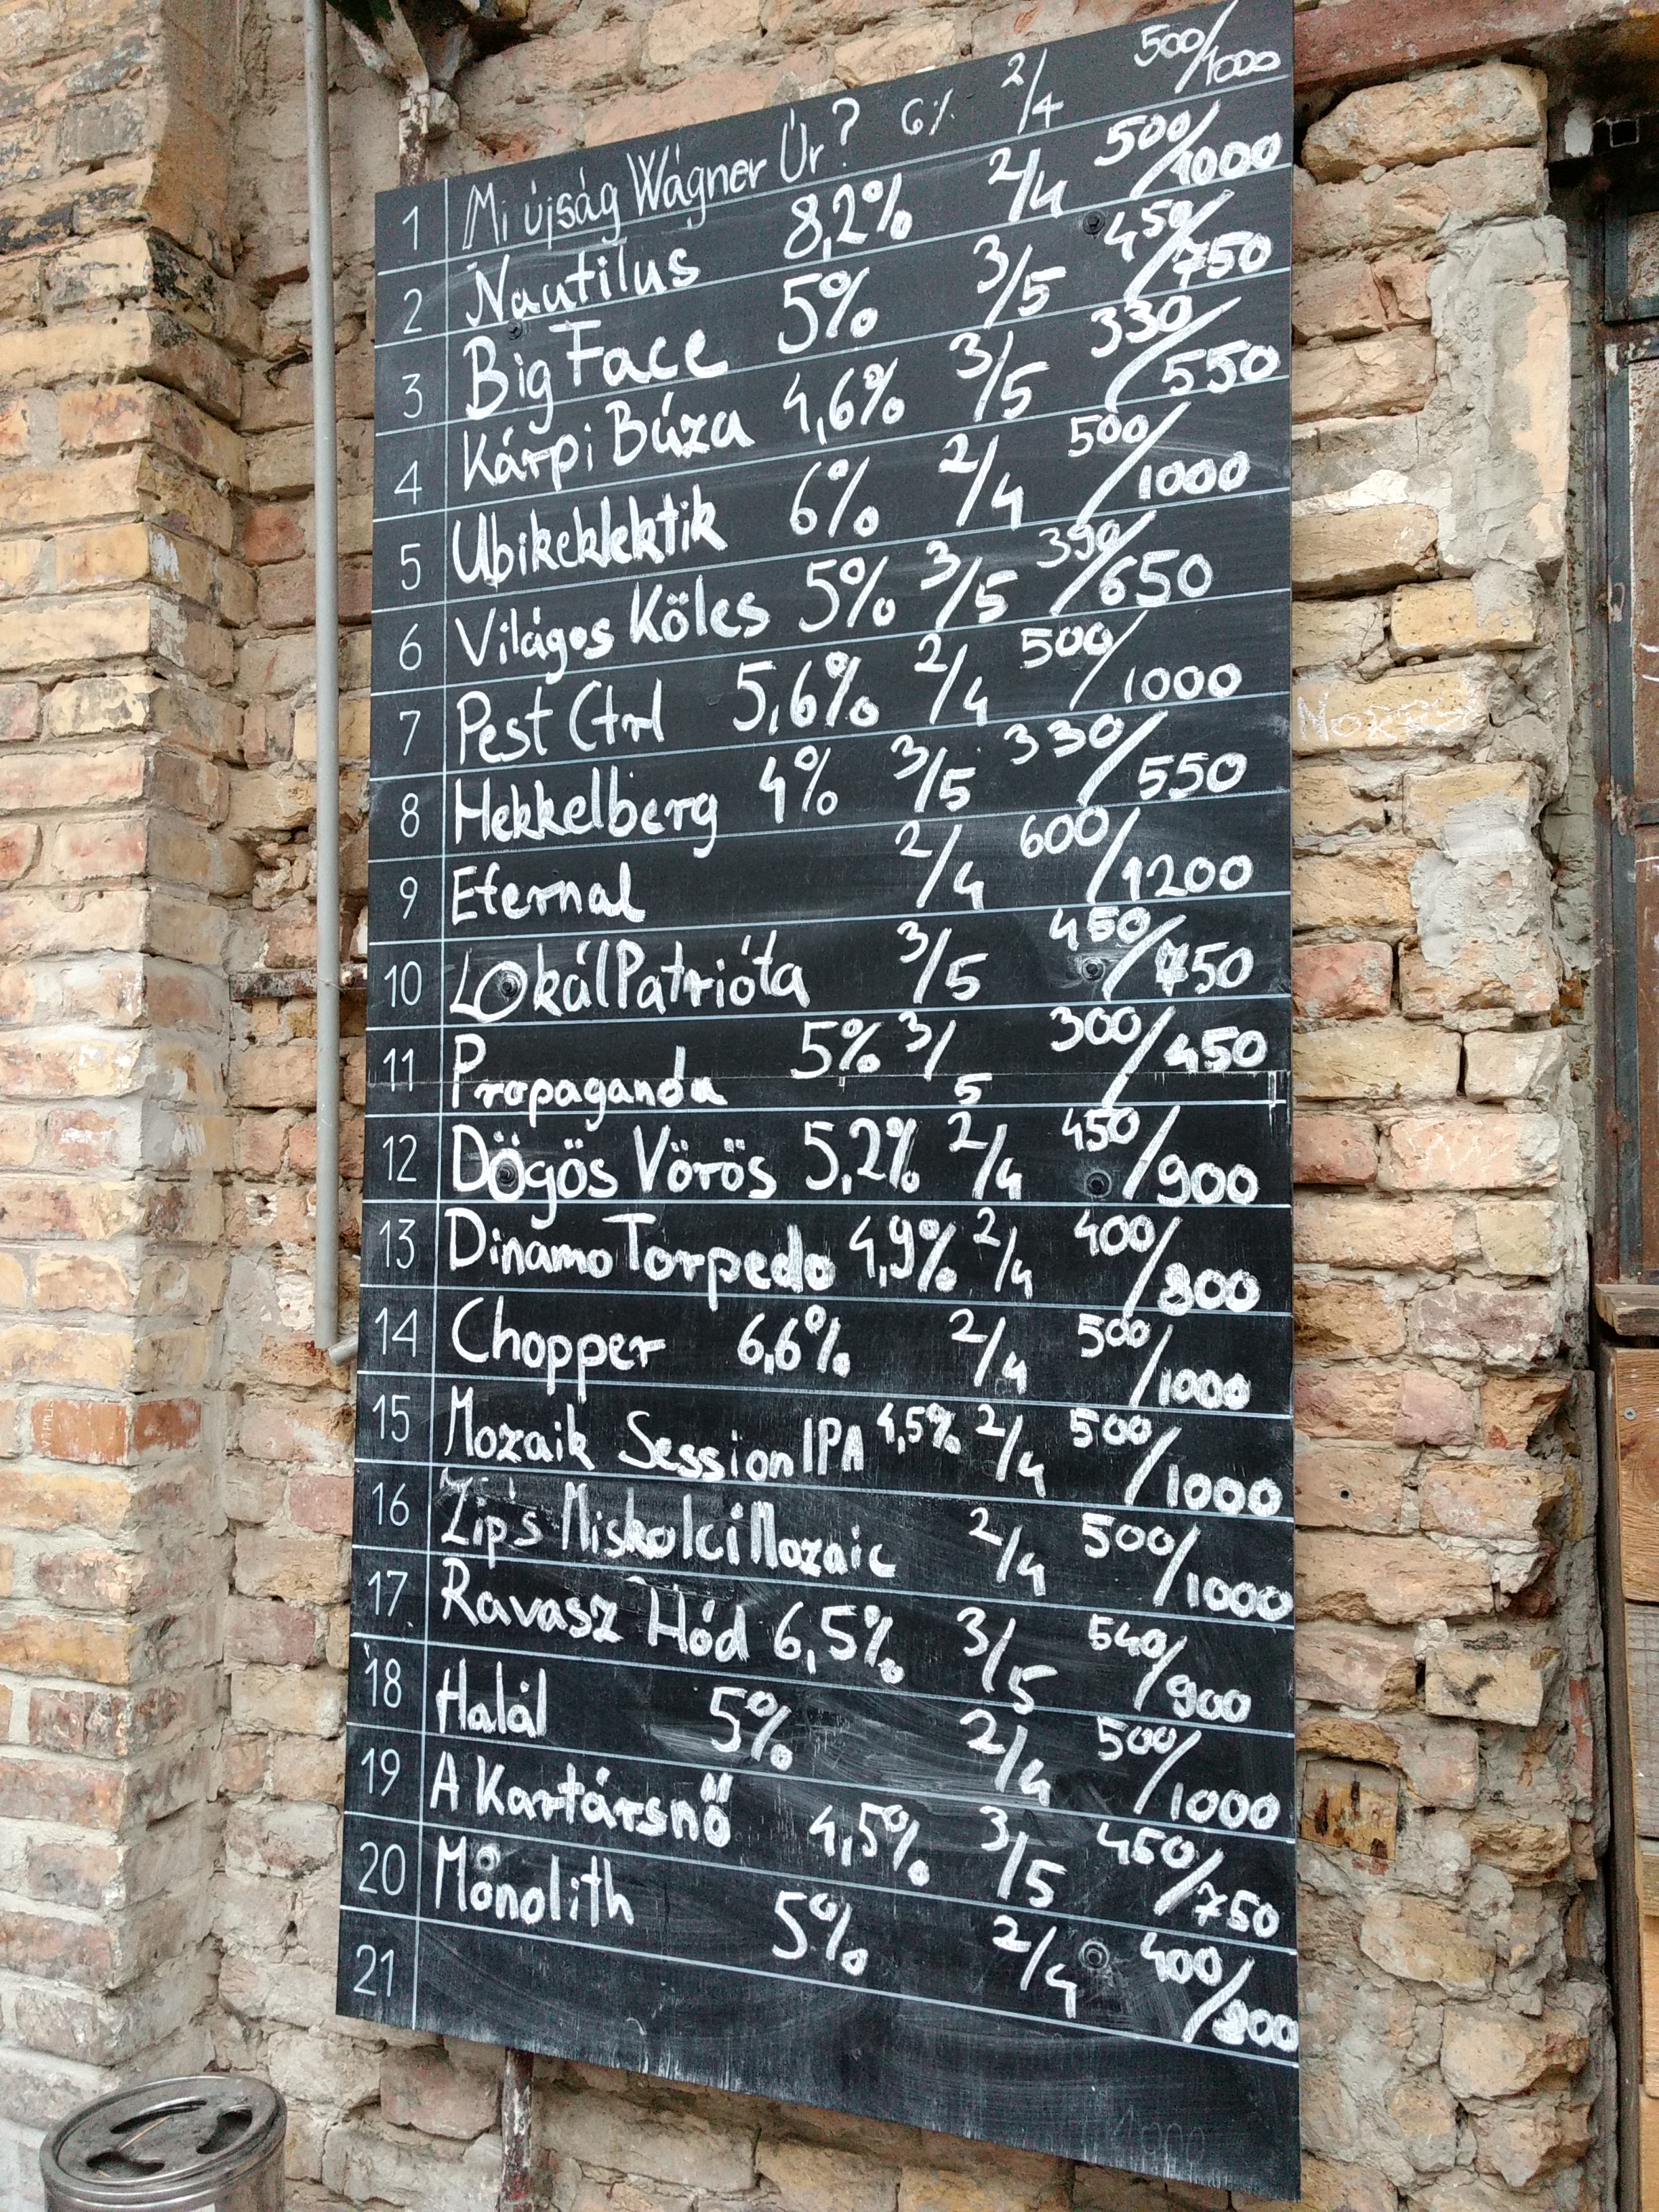 1 Mi újság Wágner Úr? 6% 2/4 500/1000
2 Nautilus 8,2% 2/4 500/1000
3 Big Face 5% 3/5 450/750
4 Kárpi Búza 4,6% 3/5 330/550
5 Ubikeklektik 6% 2/4 500/1000
6 Világos Köles 5% 3/5 390/650
7 Pest Ctrl 5,6% 2/4 500/1000
8 Hekkelberg 4% 3/5 330/550
9 Eternal 2/4 600/1200
10 LOkálPatrióta 3/5 450/750
11 Propaganda 5% 3/5 300/450
12 Dögös Vörös 5,2% 2/4 450/900
13 Dinamo Torpedo 4,9% 2/4 400/800
14 Chopper 6,6% 2/4 500/1000
15 Mozaik Session IPA 4,5% 2/4 500/1000
16 Zip's Miskolci Mozaic 2/4 500/1000
17. Ravasz Hód 6,5% 3/5 540/900
18 Halál 5% 2/4 500/1000
19 A Kartársnő 4,5% 3/5 450/750
20 Monolith 5% 2/4 400/800
21